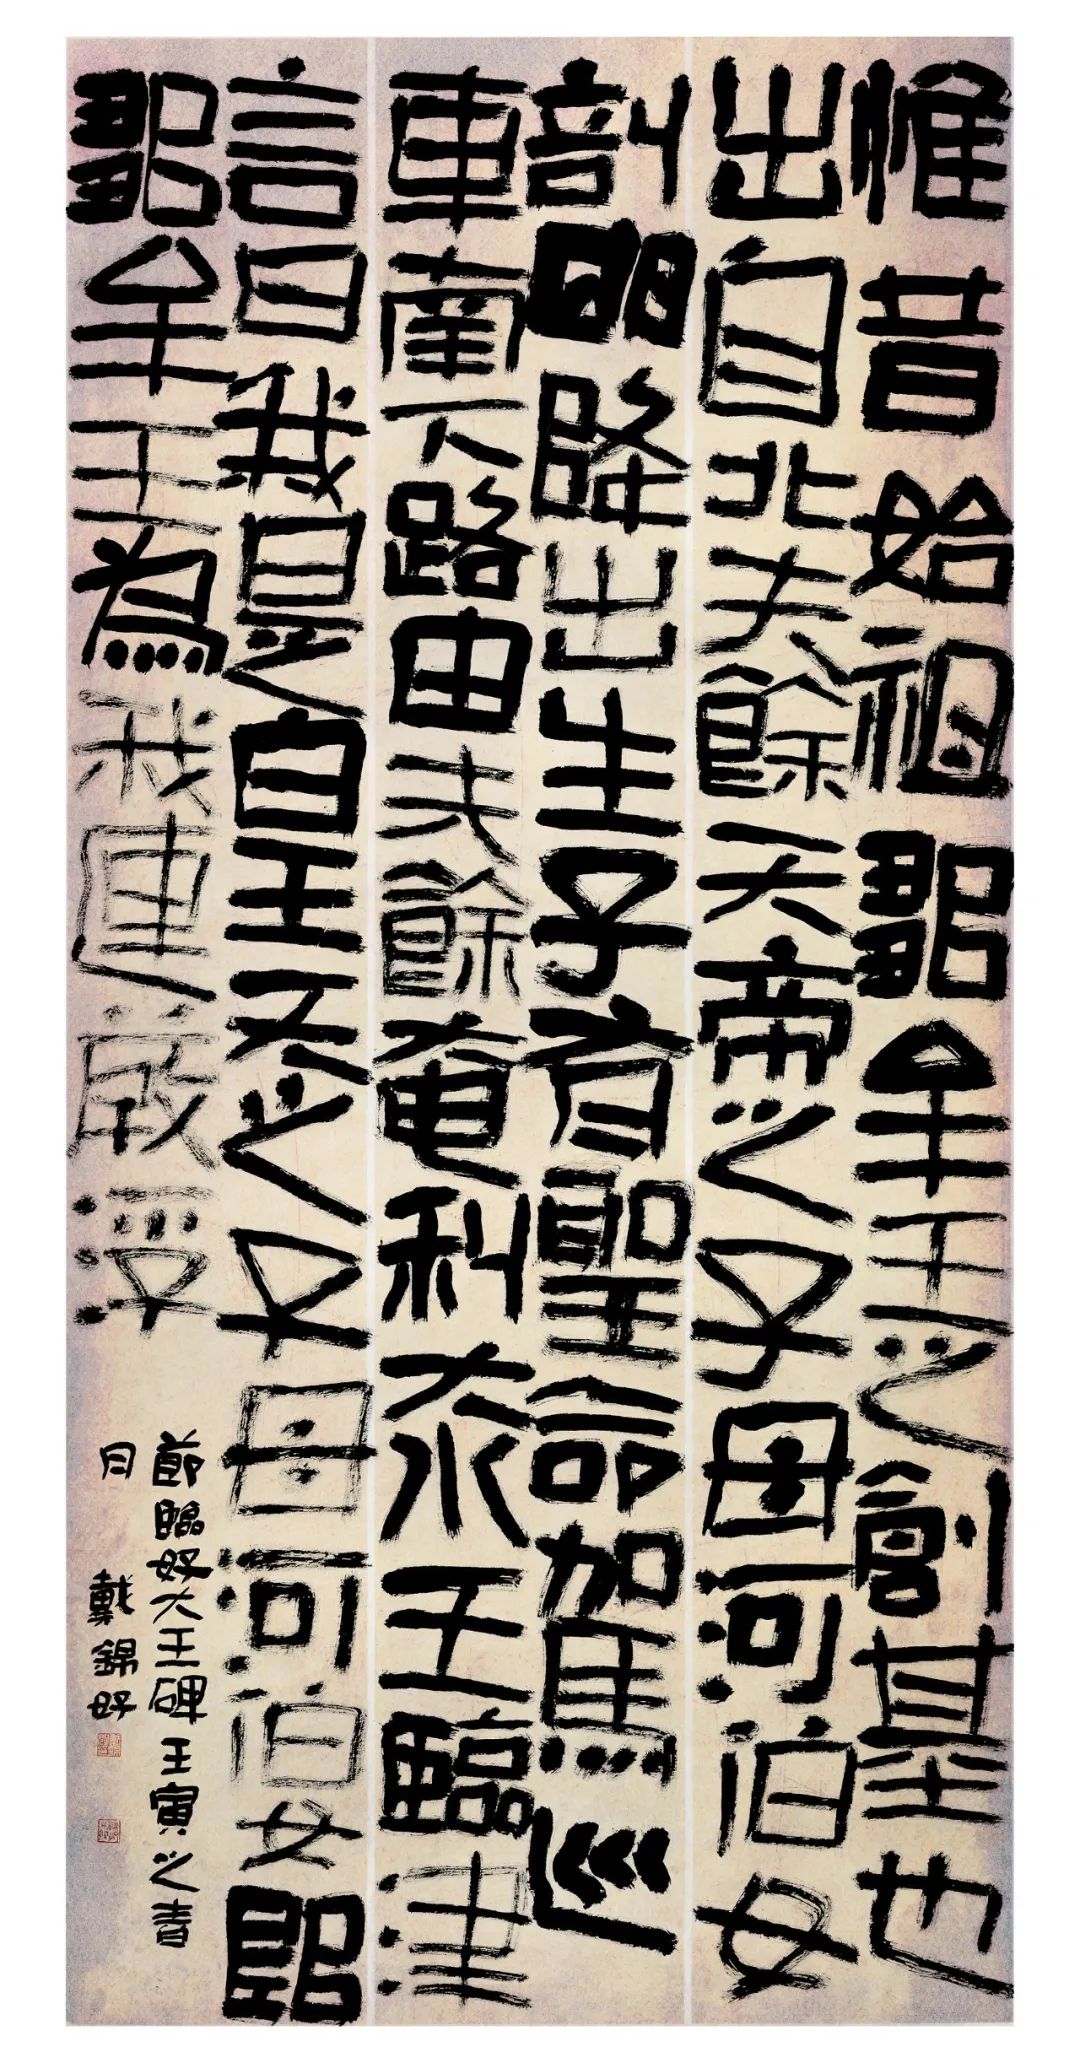 惟昔始祖鄒牟王之創基也
出自北夫餘天帝之子母河泊女
剖卵降出生子有聖命駕巡
車南下路由夫餘奄利大水王臨津
言曰我是皇天之子母河泊女郎
鄒牟王為我連葭浮
節臨好大王碑壬寅之春
月戴錦好